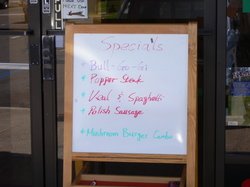 Specials
* Bull-Go-Gi
* Pepper Steak
* Veal & Spaghetti
* Polish Sausage
* Mushroom Burger Combo